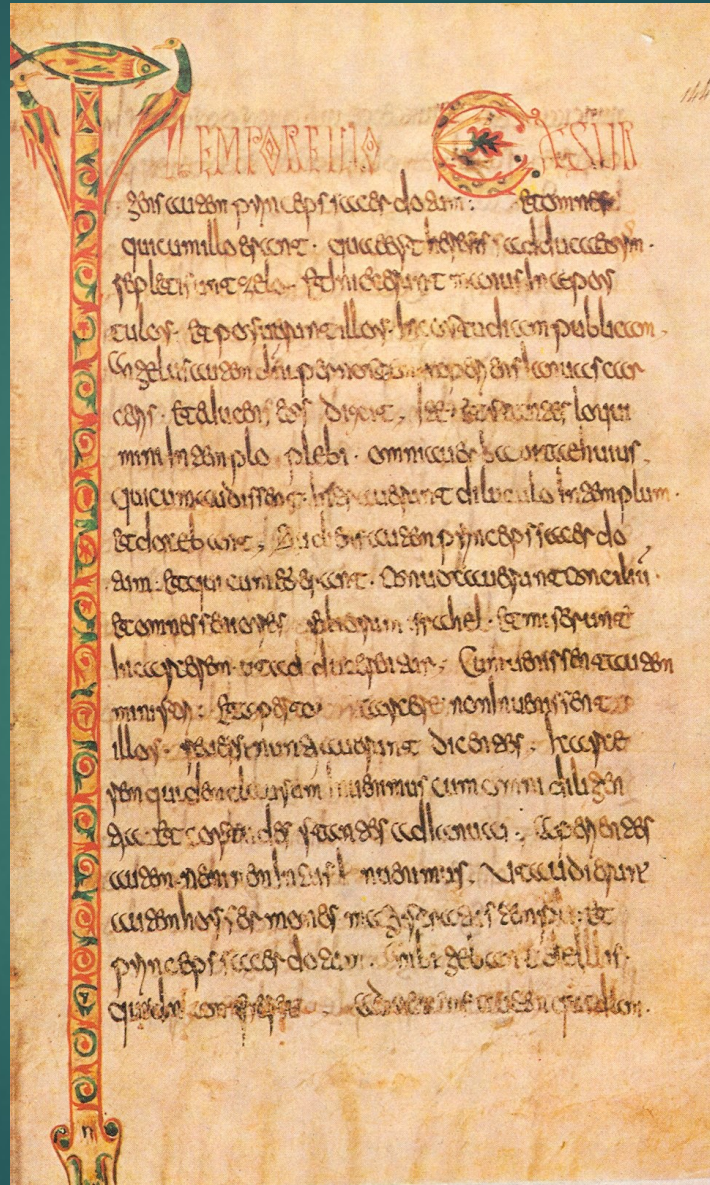 IN TEMPORE ILLO EXSUR
gens autem princeps sacerdotum: et omnes
qui cum illo erant. quae est heresis adducaeorum.
repleti sunt zelo. et iniecerunt manus in apos
tulos. et posuerunt illos in custudiam publicam.
Angelus autem dni per noctem aperiens ianuas car
ceris. et educens eos dixit. ite et stantes loqui
mini in templo plebi. omnia verba vitae huius.
qui cum audissent. intraverunt diluculo in templum.
et docebant. autem princeps sacerdo
tum. et qui cum eo erant. convocaverunt conciliū.
et omnes seniores filiorum israhel. et miserunt
in carcerem. ut adducerentur. Cum venissent autem
ministri: et aperto carcere non invenissent
illos. reversi nuntiaverunt dicentes. carce
rem quidem clausum invenimus cum omni diligen
tia. et custodes stantes ad ianuas. aperientes
autem neminem intus invenimus. Ut audierunt
autem hos sermones magistratus templi: et
princeps sacerdotum. ambigebant de illis.